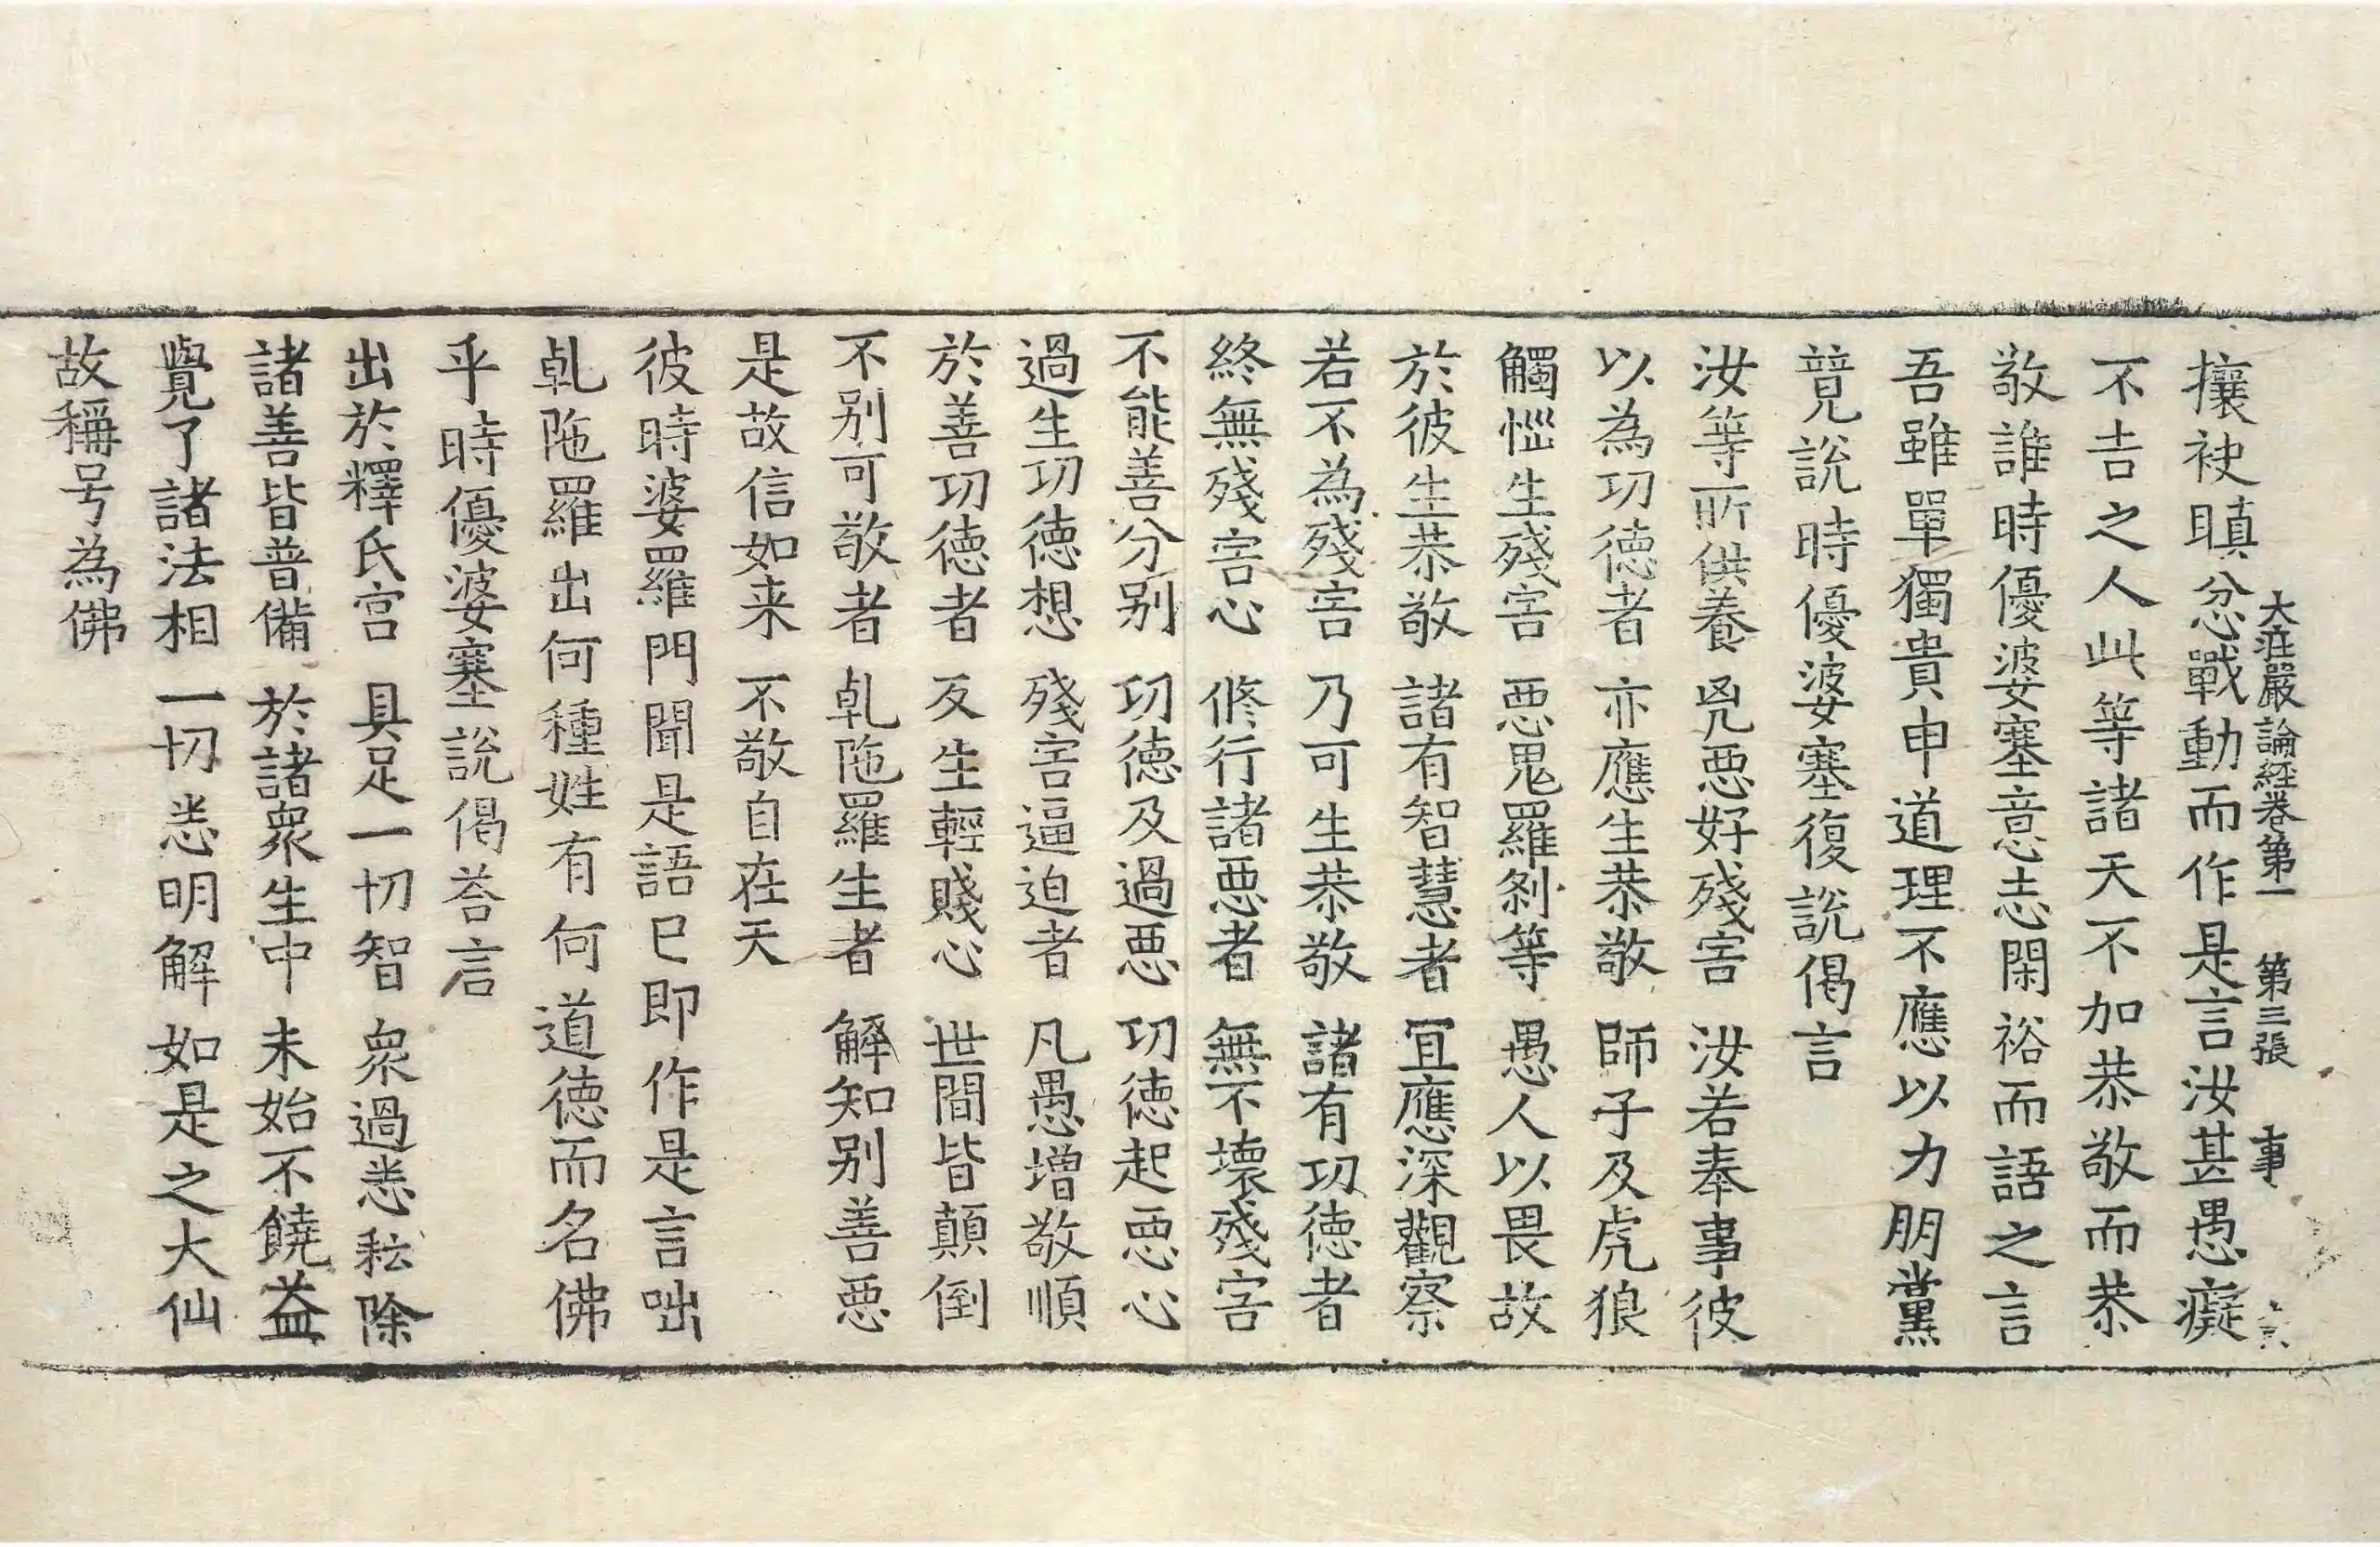 大莊嚴論經卷第一　第三張　事
攘袂瞋忿戰動而作是言汝甚愚癡
不吉之人此等諸天不加恭敬而恭
敬誰時優婆塞意志閑裕而語之言
吾雖單獨貴申道理不應以力朋黨
競說時優婆塞復說偈言
汝等所供養　兇惡好殘害　汝若奉事彼
以為功德者　亦應生恭敬　師子及虎狼
觸惱生殘害　惡鬼羅剎等　愚人以畏故
於彼生恭敬　諸有智慧者　宜應深觀察
若不為殘害　乃可生恭敬　諸有功德者
終無殘害心　修行諸惡者　無不壞殘害
不能善分別　功德及過惡　功德起惡心
過生功德想　殘害逼迫者　凡愚增敬順
於善功德者　反生輕賤心　世間皆顛倒
不別可敬者　乹陁羅生者　解知別善惡
是故信如来　不敬自在天
彼時婆羅門聞是語已即作是言咄
乹陁羅出何種姓有何道德而名佛
乎時優婆塞說偈荅言
出於釋氏宮　具足一切智　衆過悉耘除
諸善皆普備　於諸衆生中　未始不饒益
覺了諸法相　一切悉明解　如是之大仙
故稱号為佛